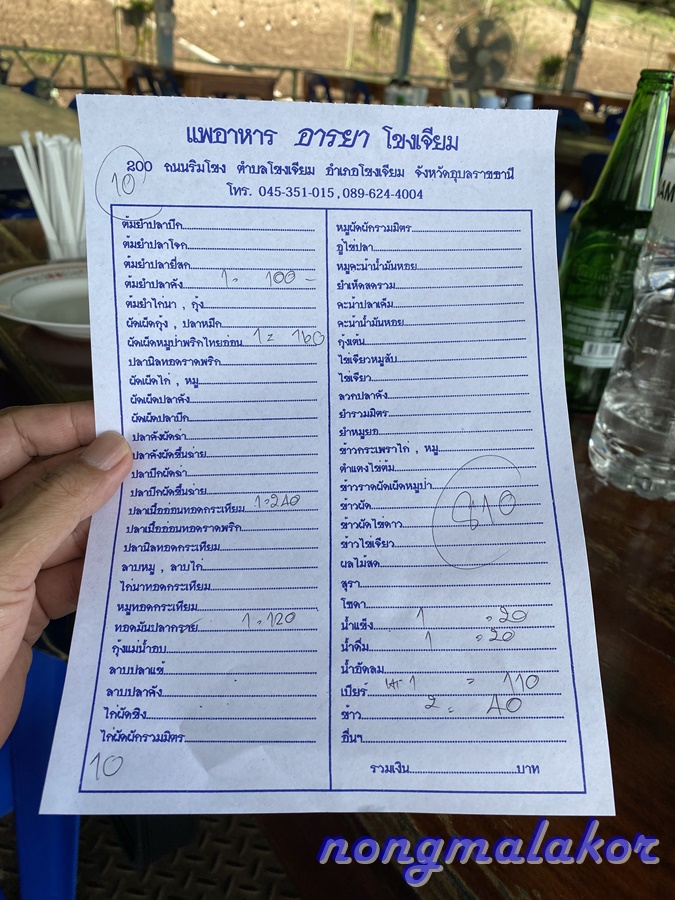 แพอาหาร อารยา โขงเจียม
200 ถนนริมโขง ตำบลโขงเจียม อำเภอโขงเจียม จังหวัดอุบลราชธานี
โทร. 045-351-015,089-624-4004
10
ต้มยำปลาบึก
ต้มยำปลาโจก
ต้มยำปลายี่สก
ต้มยำปลาคัง 1 = 100 -
ต้มยำไก่นา , กุ้ง
ผัดเผ็ดกุ้ง , ปลาหมึก
ผัดเผ็ดหมูป่าพริกไทยอ่อน 1 = 160
ปลานิลทอดราดพริก
ผัดเผ็ดไก่ , หมู
ผัดเผ็ดปลาคัง
ผัดเผ็ดปลาบึก
ปลาคังผัดฉ่า
ปลาคังผัดขึ้นฉ่าย
ปลาบึกผัดฉ่า
ปลาบึกผัดขึ้นฉ่าย
ปลาเนื้ออ่อนทอดกระเทียม 1 = 240
ปลาเนื้ออ่อนทอดราดพริก
ปลานิลทอดกระเทียม
ลาบหมู , ลาบไก่
ไก่นาทอดกระเทียม
หมูทอดกระเทียม
ทอดมันปลากราย 1 = 120
กุ้งแม่น้ำอบ
ลาบปลาแข้
ลาบปลาคัง
ไก่ผัดขิง
ไก่ผัดผักรวมมิตร
10
หมูผัดผักรวมมิตร
อู๋ไข่ปลา
หมูคะน้าน้ำมันหอย
ยำเห็ดสดรวม
คะน้าปลาเค็ม
คะน้าน้ำมันหอย
กุ้งเต้น
ไข่เจียวหมูสับ
ไข่เจียว
ลวกปลาคัง
ยำรวมมิตร
ยำหมูยอ
ข้าวกระเพราไก่ , หมู
ตำแตงไข่ต้ม
ข้าวราดผัดเผ็ดหมูป่า
ข้าวผัด
ข้าวผัดไข่ดาว
810
ข้าวไข่เจียว
ผลไม้สด
สุรา
โซดา
น้ำแข็ง 1 = 20
น้ำดื่ม 1 = 20
น้ำอัดลม
เบียร์ 1 = 110
ข้าว 2 = 40
อื่นๆ
รวมเงิน บาท
nongmalakor